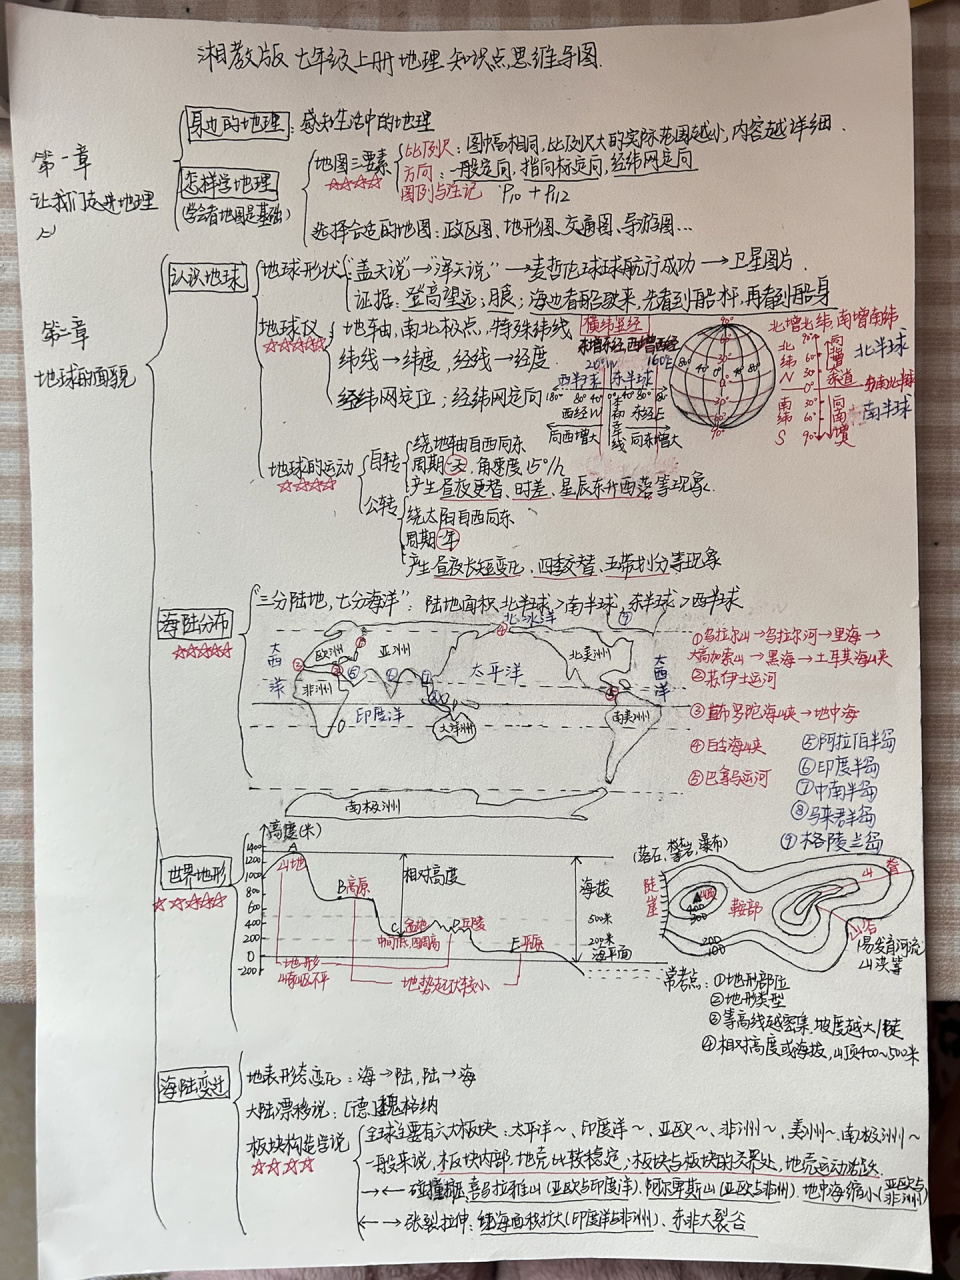 湘教版七年级上册地理知识点思维导图
第一章
让我们走进地理
身边的地理：感知生活中的地理
怎样学地理
(学会看地图是基础)
地图三要素
☆☆☆☆
比例尺：图幅相同，比例尺大的实际范围越小，内容越详细.
方向：一般定向，指向标定向，经纬网定向
图例与注记 P10 + P112
选择合适的地图：政区图、地形图、交通图、导游图...
第二章
地球的面貌
认识地球
地球形状
"盖天说"→"浑天说"→麦哲伦环球航行成功→卫星图片.
证据：登高望远；月食；海边看船驶来，先看到船杆，再看到船身
地球仪
☆☆☆☆☆
地轴，南北极点，特殊纬线
纬线→纬度，经线→经度.
经纬网定位；经纬网定向
横纬竖经
东增东经，西增西经
20°W 160°E
西半球 东半球
180° 80° 40° 0° 40° 80°
西经W 东经E
本初子午线
向西增大 向东增大
北增北纬，南增南纬
北纬N
南纬S
90° 60° 30° 0° 30° 60° 90°
向北增
赤道
向南增
北半球
南半球
地球的运动
☆☆☆☆☆
自转
绕地轴自西向东
周期一天，角速度15°/h
产生昼夜更替、时差、星辰东升西落等现象.
公转
绕太阳自西向东
周期一年
产生昼夜长短变化、四季交替、五带划分等现象
海陆分布
☆☆☆☆☆
"三分陆地，七分海洋"：陆地面积 北半球>南半球，东半球>西半球
北冰洋
大西洋
欧洲
亚洲
非洲
印度洋
太平洋
大洋洲
北美洲
南美洲
大西洋
南极洲
①乌拉尔山→乌拉尔河→里海→
大高加索山→黑海→土耳其海峡
②苏伊士运河
③直布罗陀海峡→地中海
④白令海峡
⑤巴拿马运河
⑤阿拉伯半岛
⑥印度半岛
⑦中南半岛
⑧马来群岛
⑨格陵兰岛
世界地形
☆☆☆☆☆
高度(米)
1400
1200
1000
800
600
400
200
0
-200
A
山地
B高原
C
盆地
中间低，四周高
D丘陵
E平原
相对高度
海拔
500米
200米
海平面
地形
崎岖不平
地势起伏较小
(落石，攀岩，瀑布)
陡崖
山顶
400
300
200
100
鞍部
山脊
山谷
(易发育河流
山洪等
常考点：①地形部位
②地形类型
③等高线越密集，坡度越大/陡
④相对高度或海拔，山顶400~500米
海陆变迁
地表形态变化：海→陆，陆→海
大陆漂移说：[德]魏格纳
板块构造学说
☆☆☆☆
全球主要有六大板块：太平洋~、印度洋~、亚欧~、非洲~、美洲~、南极洲~
一般来说，板块内部，地壳比较稳定；板块与板块的交界处，地壳运动活跃.
→← 碰撞挤压：喜马拉雅山(亚欧与印度洋)、阿尔卑斯山(亚欧与非洲)、地中海缩小(亚欧与非洲)
←→ 张裂拉伸：红海面积扩大(印度洋与非洲)、东非大裂谷